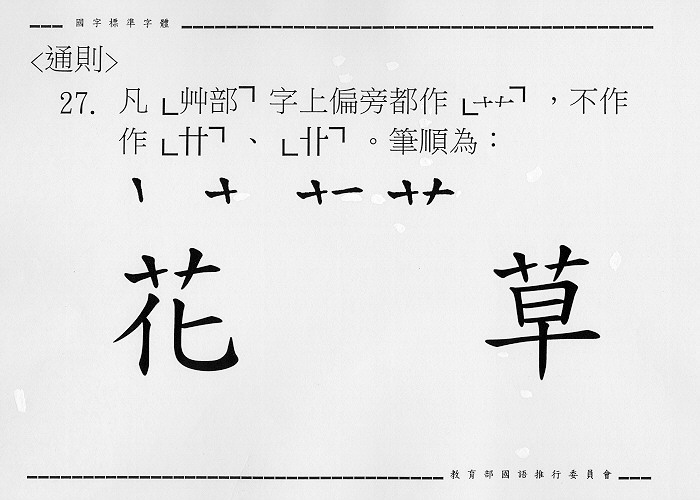 國字標準字體
<通則>
27. 凡「艸部」字上偏旁都作「艹」，不作
作「卄」、「卝」。筆順為：
花 草
教育部國語推行委員會